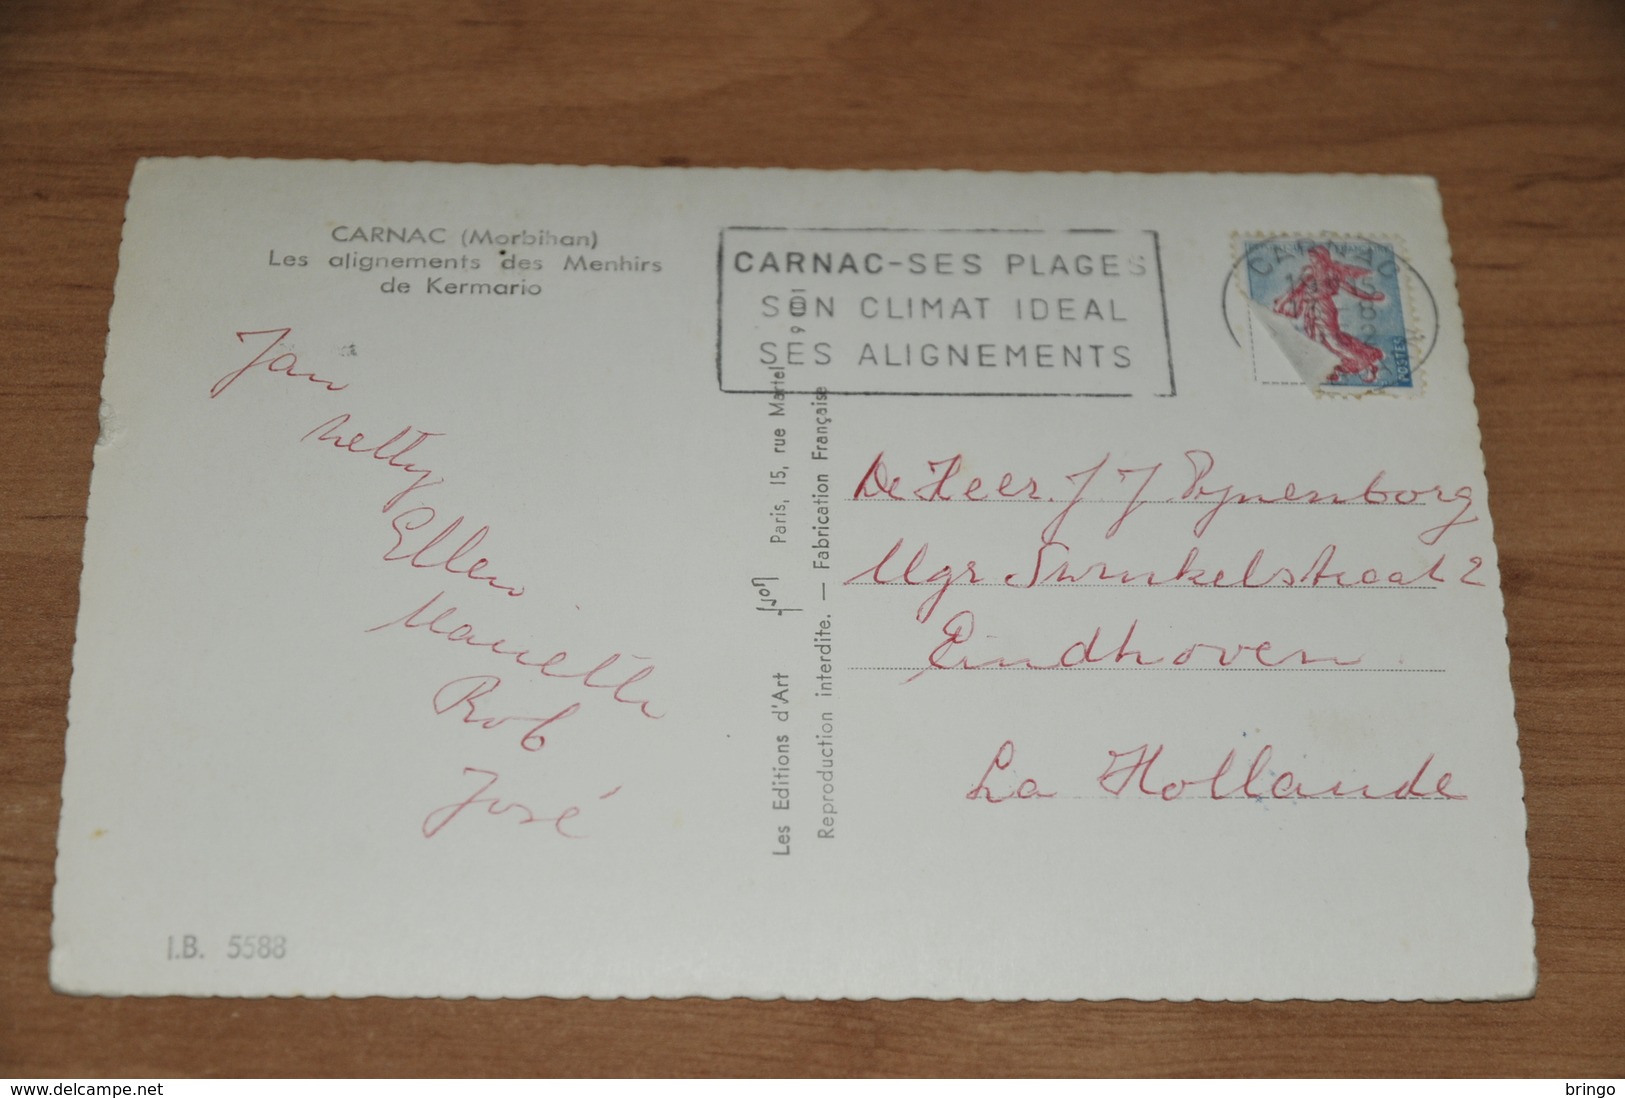 CARNAC (Morbihan)
Les alignements des Menhirs
de Kermario
Jan
Netty
Ellen
Mariette
Rob
José
I.B. 5588
Les Editions d'Art Paris, 15, rue Martel
Reproduction interdite. — Fabrication Française
CARNAC-SES PLAGES
SON CLIMAT IDEAL
SES ALIGNEMENTS
CARNAC
POSTES
De Heer J J Pijnenborg
Mgr Swinkelstraat 2
Eindhoven
La Hollande
www.delcampe.net
bringo